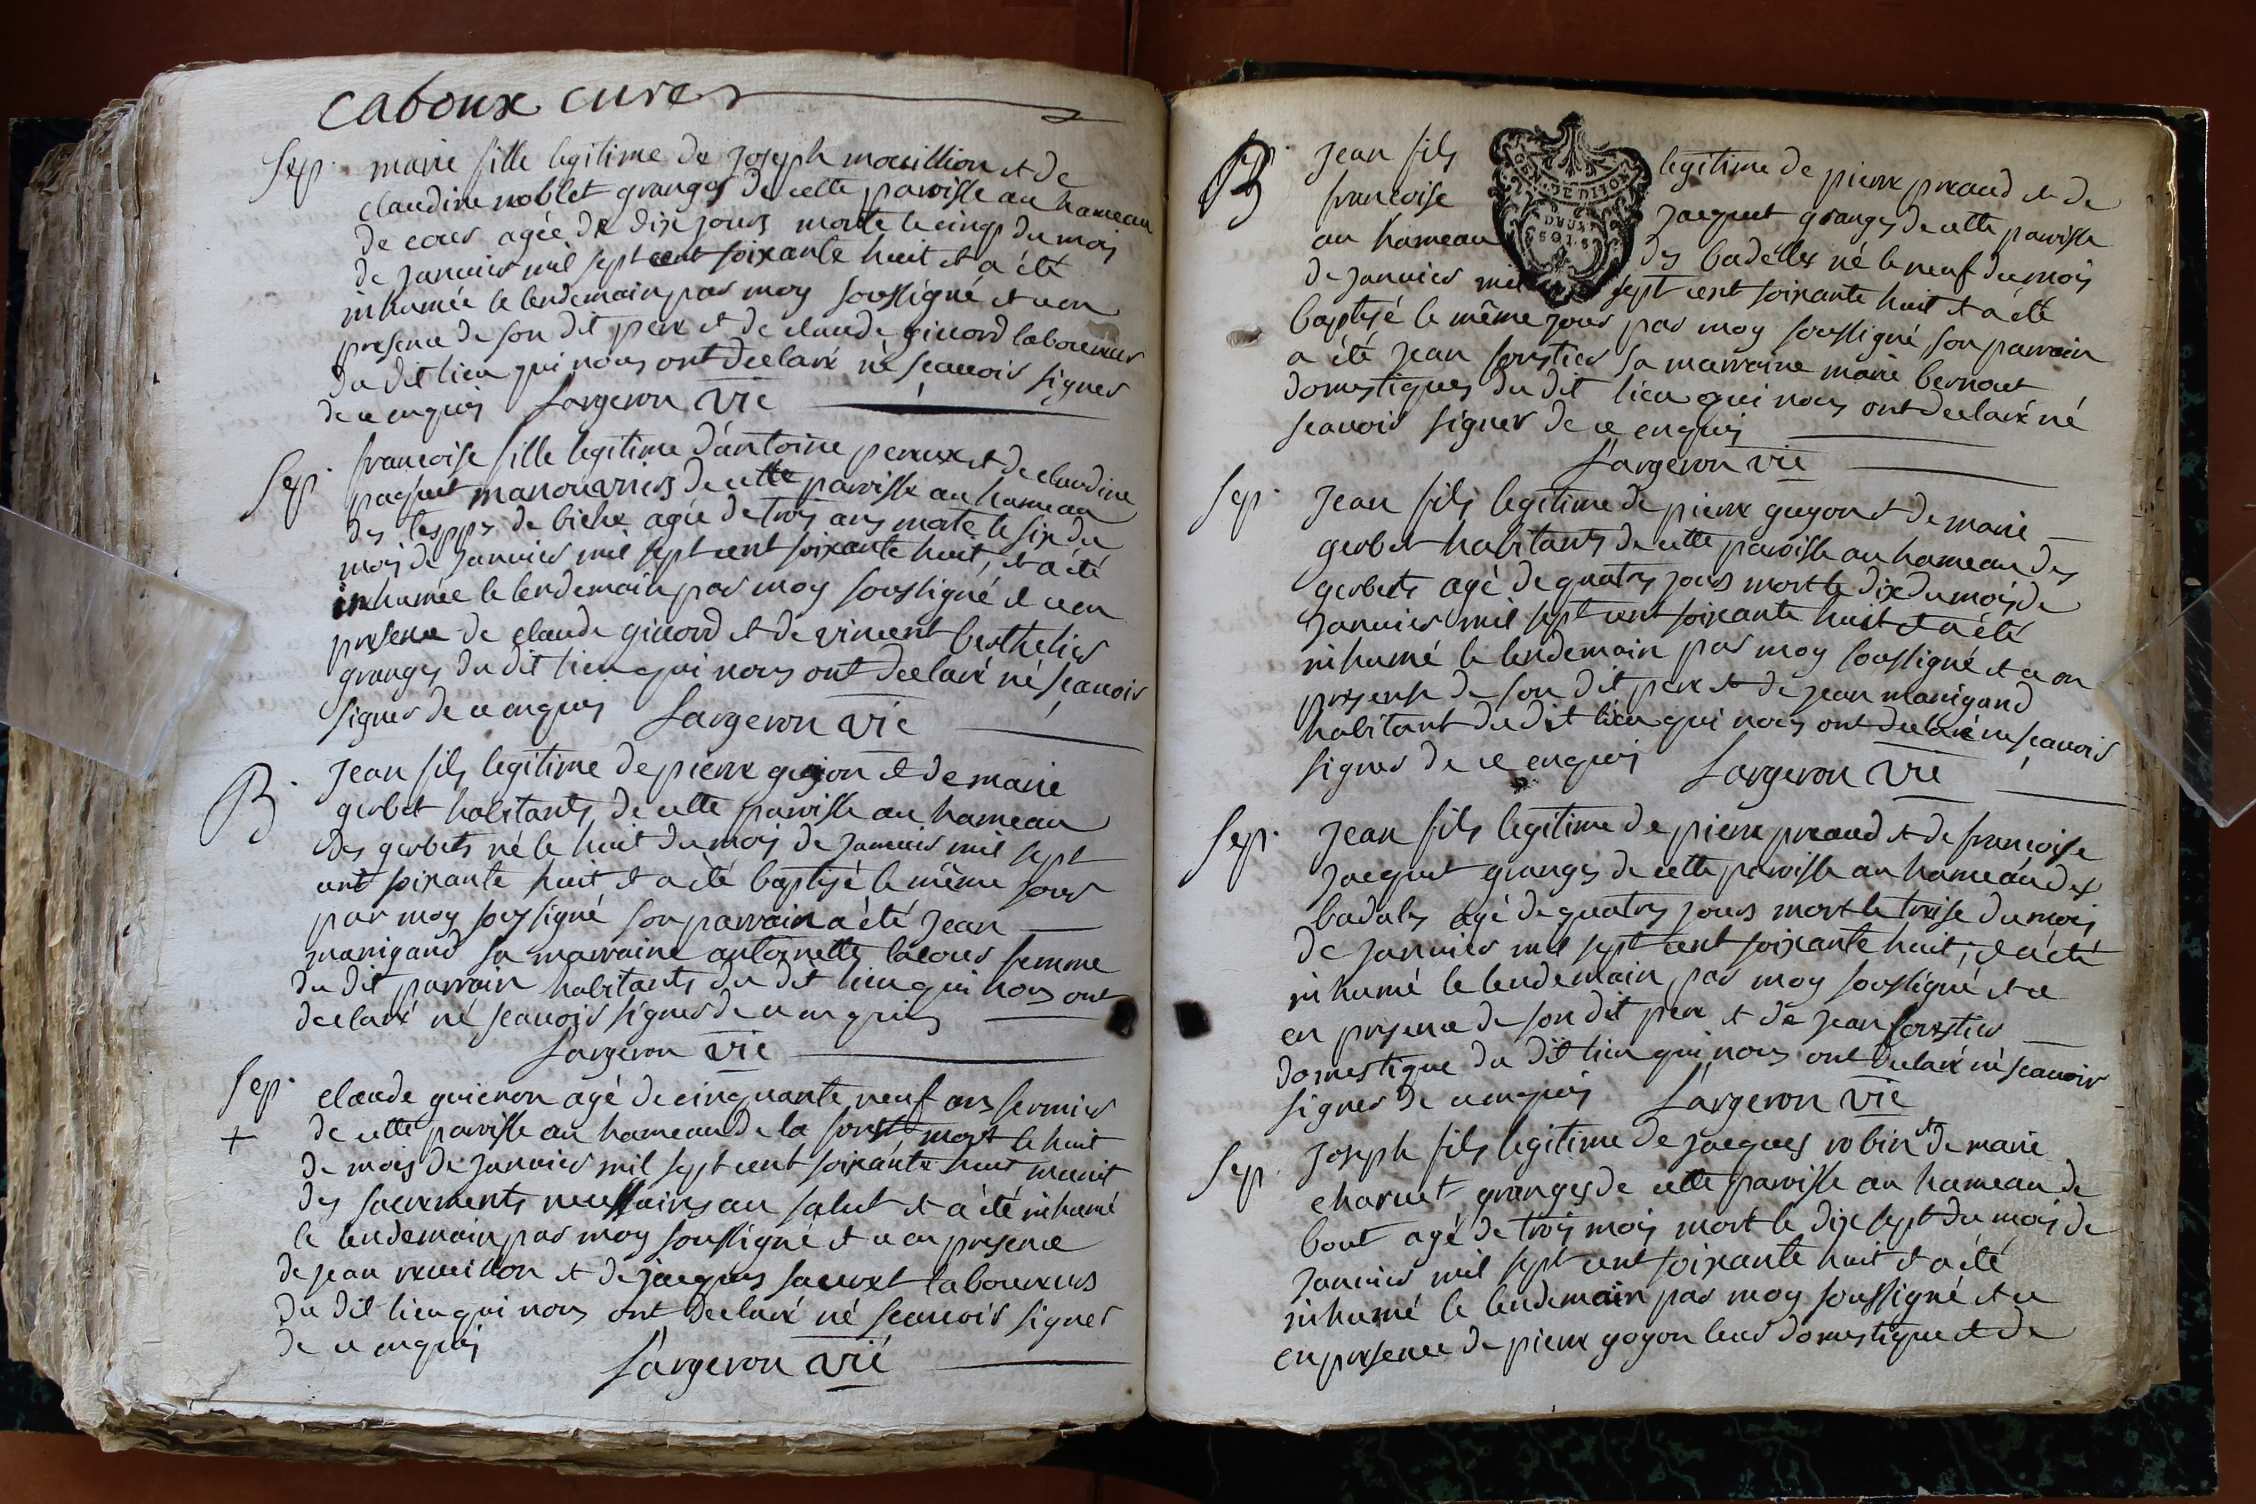 caboux curé
Sep. marie fille legitime de Joseph mouillion et de
claudine noblet granger de cette paroisse au hameau
de cour agée de dix jours morte le cinq du mois
de Janvier mil sept cent soixante huit et a été
inhumée le lendemain par moy soussigné et ce en
presence de son dit pere et de claude giuord laboureur
du dit lieu qui nous ont declaré né scauoir signer
de ce enquis Largeron vic
Sep. francoise fille legitime d'antoine perux et de claudine
paquet manouvrier de cette paroisse au hameau
des de biche agée de trois ans morte le six du
mois de Janvier mil sept cent soixante huit, et a été
inhumée le lendemain par moy soussigné et ce en
presence de claude giuord et de vincent berthelier
granger du dit lieu qui nous ont declaré né scauoir
signer de ce enquis Largeron vic
B. Jean fils legitime de pierre guyon et de marie
gerbet habitants de cette paroisse au hameau
des gerbets né le huit du mois de Janvier mil sept
cent soixante huit et a été baptisé le même jour
par moy soussigné son parrain a été Jean
manigand sa marraine antoinette lacour femme
du dit parrain habitants du dit lieu qui nous ont
declaré né scauoir signer de ce enquis
Largeron vic
Sep. claude guienon agé de cinquante neuf ans fermier
+ de cette paroisse au hameau de la forest, mort le huit
de mois de Janvier mil sept cent soixante huit munit
des sacrements necessaires au salut et a été inhumé
le lendemain par moy soussigné et ce en presence
de jean et de jacques laboureurs
du dit lieu qui nous ont declaré né scauoir signer
de ce enquis
Largeron vic
B. Jean fils legitime de pierre preaud et de
francoise Jacquet granger de cette paroisse
au hameau des badelles né le neuf du mois
de Janvier mil sept cent soixante huit et a été
baptisé le même jour par moy soussigné, son parrain
a été Jean forestier sa marraine marie bernard
domestiques du dit lieu qui nous ont declaré né
scauoir signer de ce enquis
Largeron vic
GEN. DE DIJON
Sep. Jean fils legitime de pierre guyon et de marie
gerbet habitants de cette paroisse au hameau des
gerbets agé de quatre jours mort le dix du mois de
Janvier mil sept cent soixante huit et a été
inhumé le lendemain par moy soussigné et ce en
presence de son dit pere et de jean manigand
habitant du dit lieu qui nous ont declaré ne scauoir
signer de ce enquis Largeron vic
Sep. Jean fils legitime de pierre preaud et de francoise
Jacquet granger de cette paroisse au hameau des
badeles agé de quatre jours mort le treise du mois
de Janvier mil sept cent soixante huit, et a été
inhumé le lendemain par moy soussigné et ce
en presence de son dit pere et de jean forestier
domestique du dit lieu qui nous ont declaré né scauoir
signer de ce enquis Largeron vic
Sep. Joseph fils legitime de jacques robin et de marie
charuet granger de cette paroisse au hameau de
bout agé de trois mois mort le dix sept du mois de
Janvier mil sept cent soixante huit et a été
inhumé le lendemain par moy soussigné et ce
en presence de pierre goyon leur domestique et de